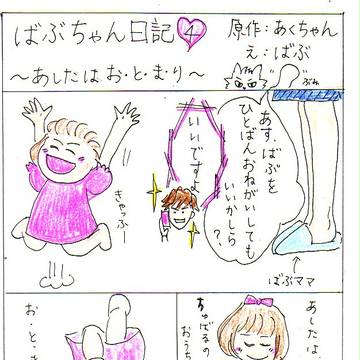 ばぶちゃん日記 4
原作：あくちゃん
え・ばぶ
〜あしたはお・と・ま・り〜
ぶね
あす、ばぶを
ひとばんおねがいしても
いいかしら
？
ばぶママ
いいですよ
きゃっふー
あしたは、
ちゅばるの
おうち
お・と・ま